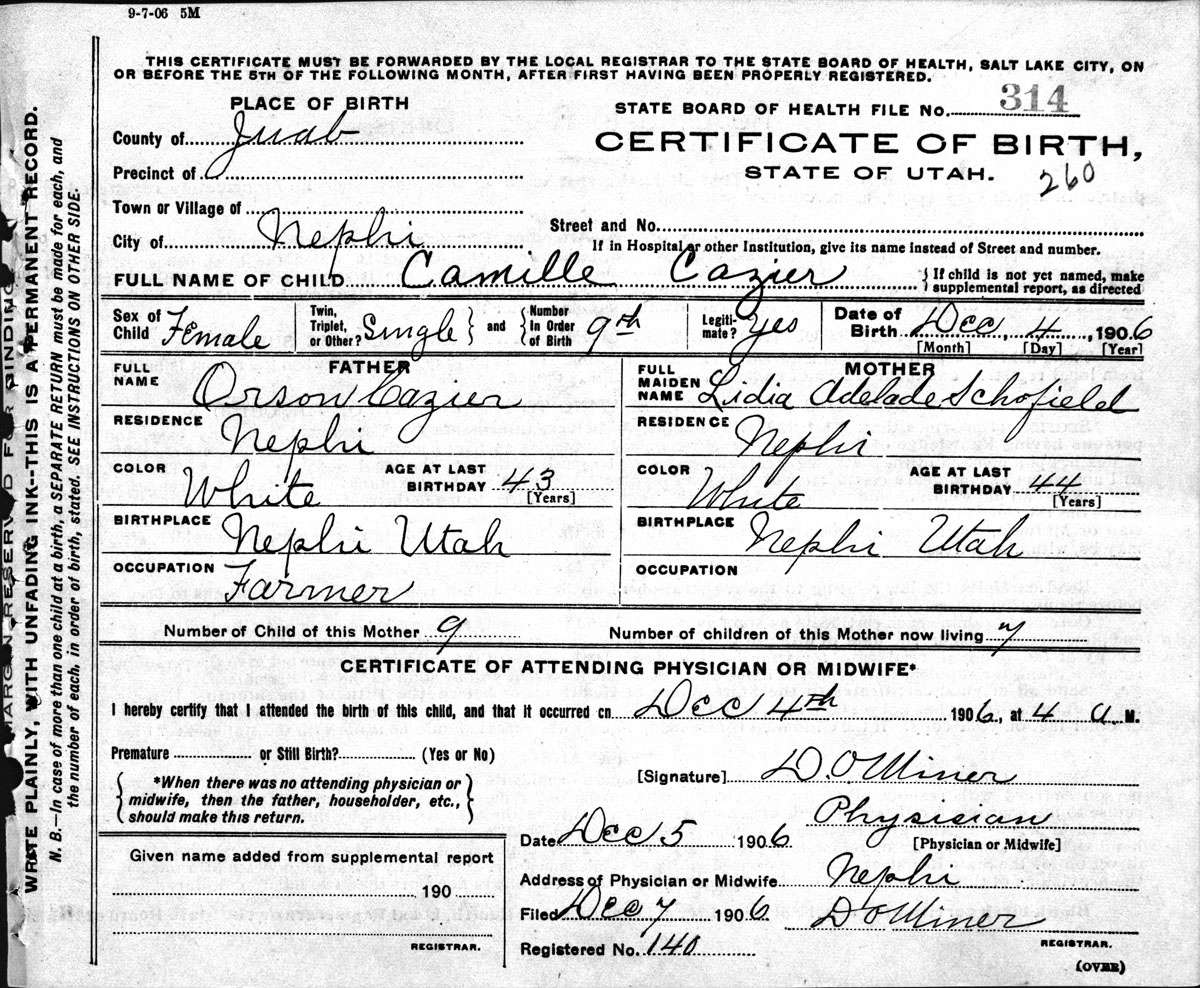 9-7-06 5M
THIS CERTIFICATE MUST BE FORWARDED BY THE LOCAL REGISTRAR TO THE STATE BOARD OF HEALTH, SALT LAKE CITY, ON
OR BEFORE THE 5TH OF THE FOLLOWING MONTH, AFTER FIRST HAVING BEEN PROPERLY REGISTERED.
PLACE OF BIRTH
STATE BOARD OF HEALTH FILE No. 314
County of Juab
CERTIFICATE OF BIRTH,
Precinct of
STATE OF UTAH.
260
Town or Village of
Street and No.
City of Nephi
If in Hospital or other Institution, give its name instead of Street and number.
FULL NAME OF CHILD Camille Cazier
} If child is not yet named, make
supplemental report, as directed
Sex of Child Female
Twin, Triplet, or Other? Single } and { Number in Order of Birth 9th
Legiti-mate? Yes
Date of Birth Dec, 4, 1906
[Month] [Day] [Year]
FATHER
FULL NAME Orson Cazier
RESIDENCE Nephi
COLOR White AGE AT LAST BIRTHDAY 43
[Years]
BIRTHPLACE Nephi Utah
OCCUPATION Farmer
MOTHER
FULL MAIDEN NAME Lidia Adelade Schofield
RESIDENCE Nephi
COLOR White AGE AT LAST BIRTHDAY 44
[Years]
BIRTHPLACE Nephi Utah
OCCUPATION
Number of Child of this Mother 9 Number of children of this Mother now living 7
CERTIFICATE OF ATTENDING PHYSICIAN OR MIDWIFE*
I hereby certify that I attended the birth of this child, and that it occurred on Dec 4th 1906, at 4 a M.
Premature or Still Birth? (Yes or No)
*When there was no attending physician or
midwife, then the father, householder, etc.,
should make this return.
[Signature] D.O. Miner
Physisian
Date Dec 5 1906
[Physician or Midwife]
Address of Physician or Midwife Nephi
Filed Dec 7 1906 D O Miner
REGISTRAR.
Registered No. 140
(OVER)
Given name added from supplemental report
190
REGISTRAR.
MARGIN RESERVED FOR BINDING
WRITE PLAINLY, WITH UNFADING INK--THIS IS A PERMANENT RECORD.
N. B.—In case of more than one child at a birth, a SEPARATE RETURN must be made for each, and
the number of each, in order of birth, stated. SEE INSTRUCTIONS ON OTHER SIDE.